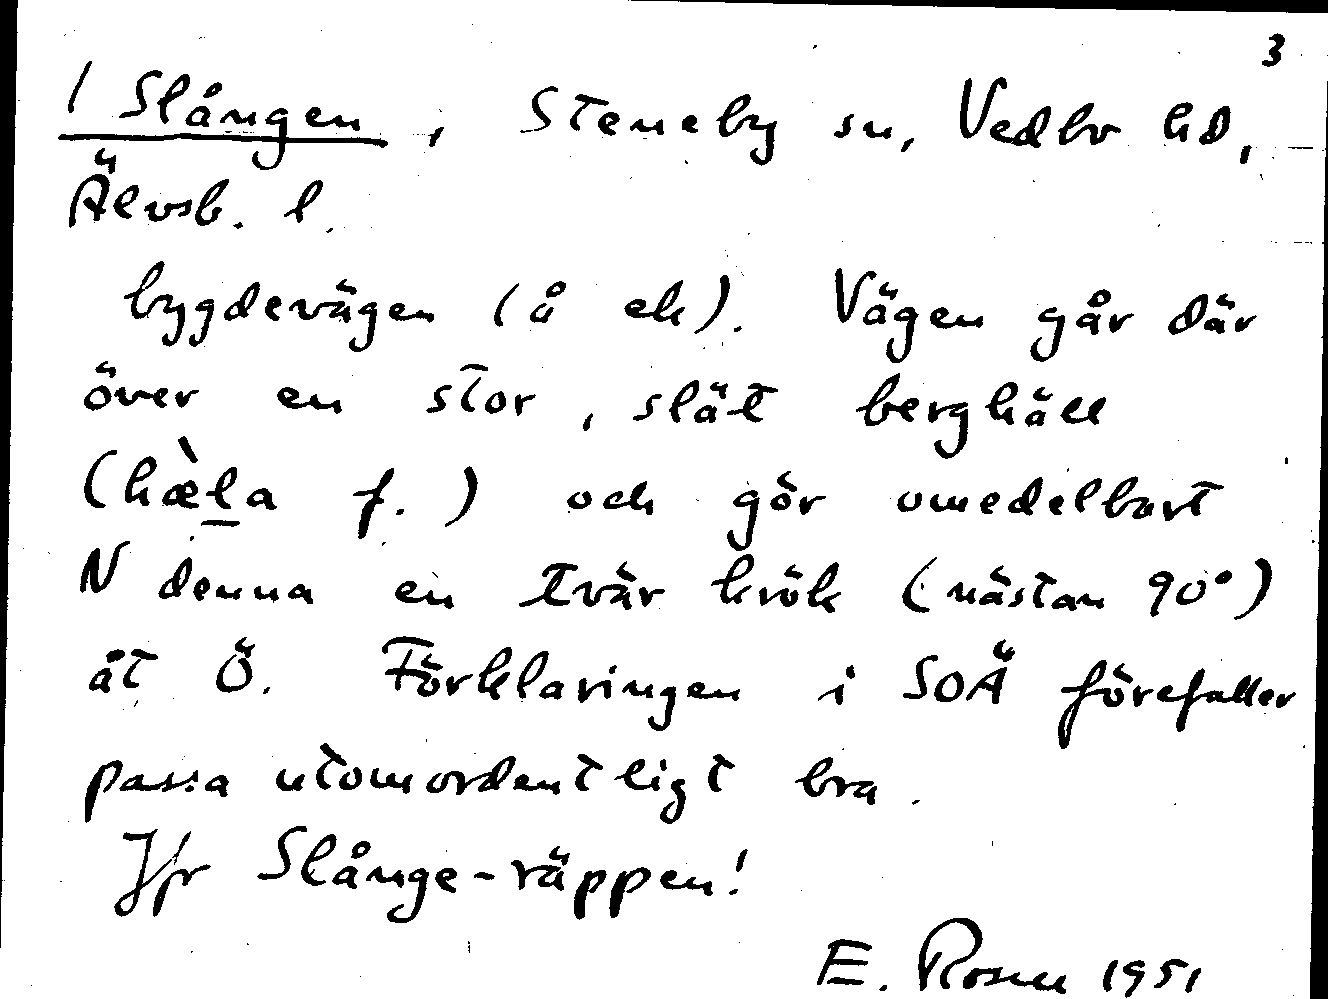 3
/ Slången, Steneby sn, Vedbo hd,
Älvsb. l.
bygdevägen (å ek). Vägen går där
över en stor, slät berghäll
(hæ̀l̲a f.) och gör omedelbart
N denna en tvär krök (nästan 90°)
åt Ö. Förklaringen i SOÄ förefaller
passa utomordentligt bra.
Jfr Slånge-räppen!
E. Rosén 1951